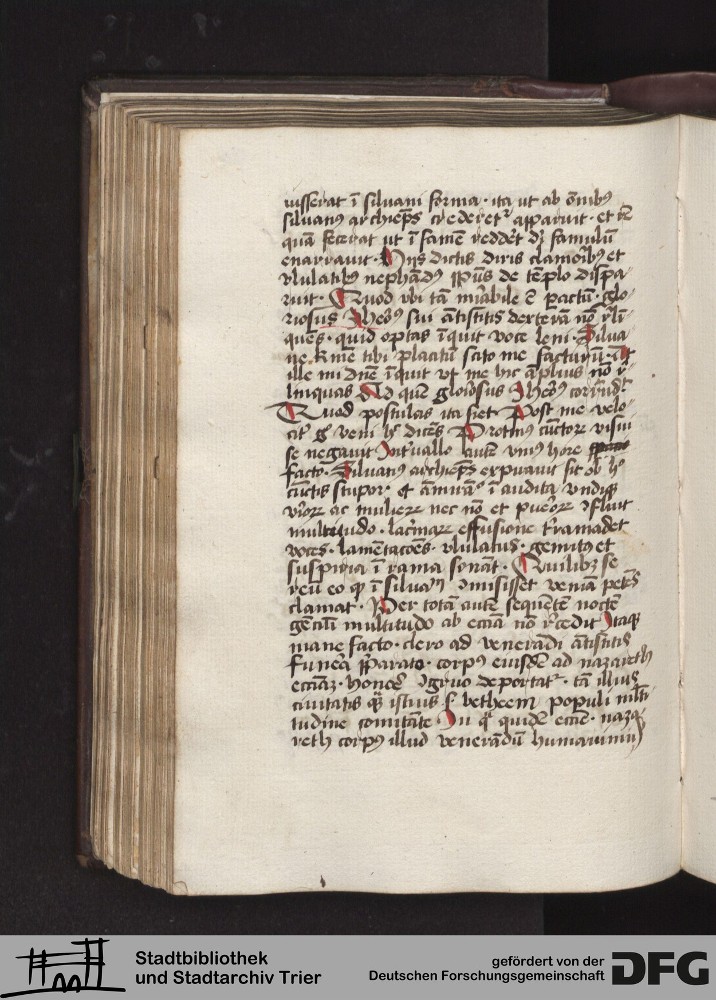 uisserat ī siluani forma · ita ut ab ōnibꝰ
siluanꝰ archiep̄s crederet̉ apparuit · et
quā fecerat ut ī famē redder̄t dī famulū
enarrauit · Hijs dictis diris clamoribꝰ et
vlulatibꝰ nephandꝰ sp̄us de tēplo dispa-
ruit · Quod vbi tā mirabile ē pactū · glo-
riosus Iheoꝰ sui antistitis dexterā nō
ques · quid optas īquit voce leni · Silua-
ne · R me tibi placitū scito me facturū · At
ille mi dn̄e īquit vt me hic āplius nō
linquas Ad quē gloriosus Iheoꝰ
Quod postulas ita fiet · Post me velo-
cit̉ veni dicēs Protinꝰ cūctorꝫ visui
se negauit Int̉uallo autē vniꝰ hore
facto · Siluanꝰ archiep̄s expirauit fit
cūctis stupor · et ī audita vndiqꝫ
virorꝫ ac mulierꝫ nec nō et puerorꝫ ꝯfluit
multitudo · lacrimarꝫ effusione
voces · lamētacōes · vlulatus · gemitꝰ et
suspiria ī rama sonāt · Quilibꝫ se
reū eo ꝙ ī siluanū ꝯmisisset veniā
clamat · Per totā autē sequētē noctē
gētiū multitudo ab eccīa nō r̄cedit Itaqꝫ
mane facto · clero ad venerādi ātistitis
funera p̄parato · corpꝰ eiusdē ad nazareth
eccīaꝫ · honore ꝯgruo deportat̉ · tā illius
ciuitatis qꝫ istius ſ betheem populi mlti-
tudine comitāte In q̄ quidē eccīa · naza-
reth corpꝰ illud venerādū humauimꝰ
Stadtbibliothek
und Stadtarchiv Trier
gefördert von der
Deutschen Forschungsgemeinschaft
DFG